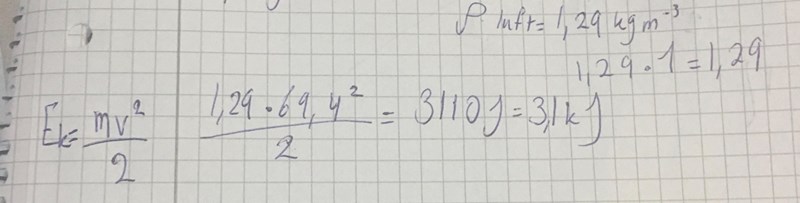 ρ luft = 1,29 kgm⁻³
1,29 · 1 = 1,29
Ek = mv²/2 (1,29 · 69,4²)/2 = 3110 J = 3,1 kJ